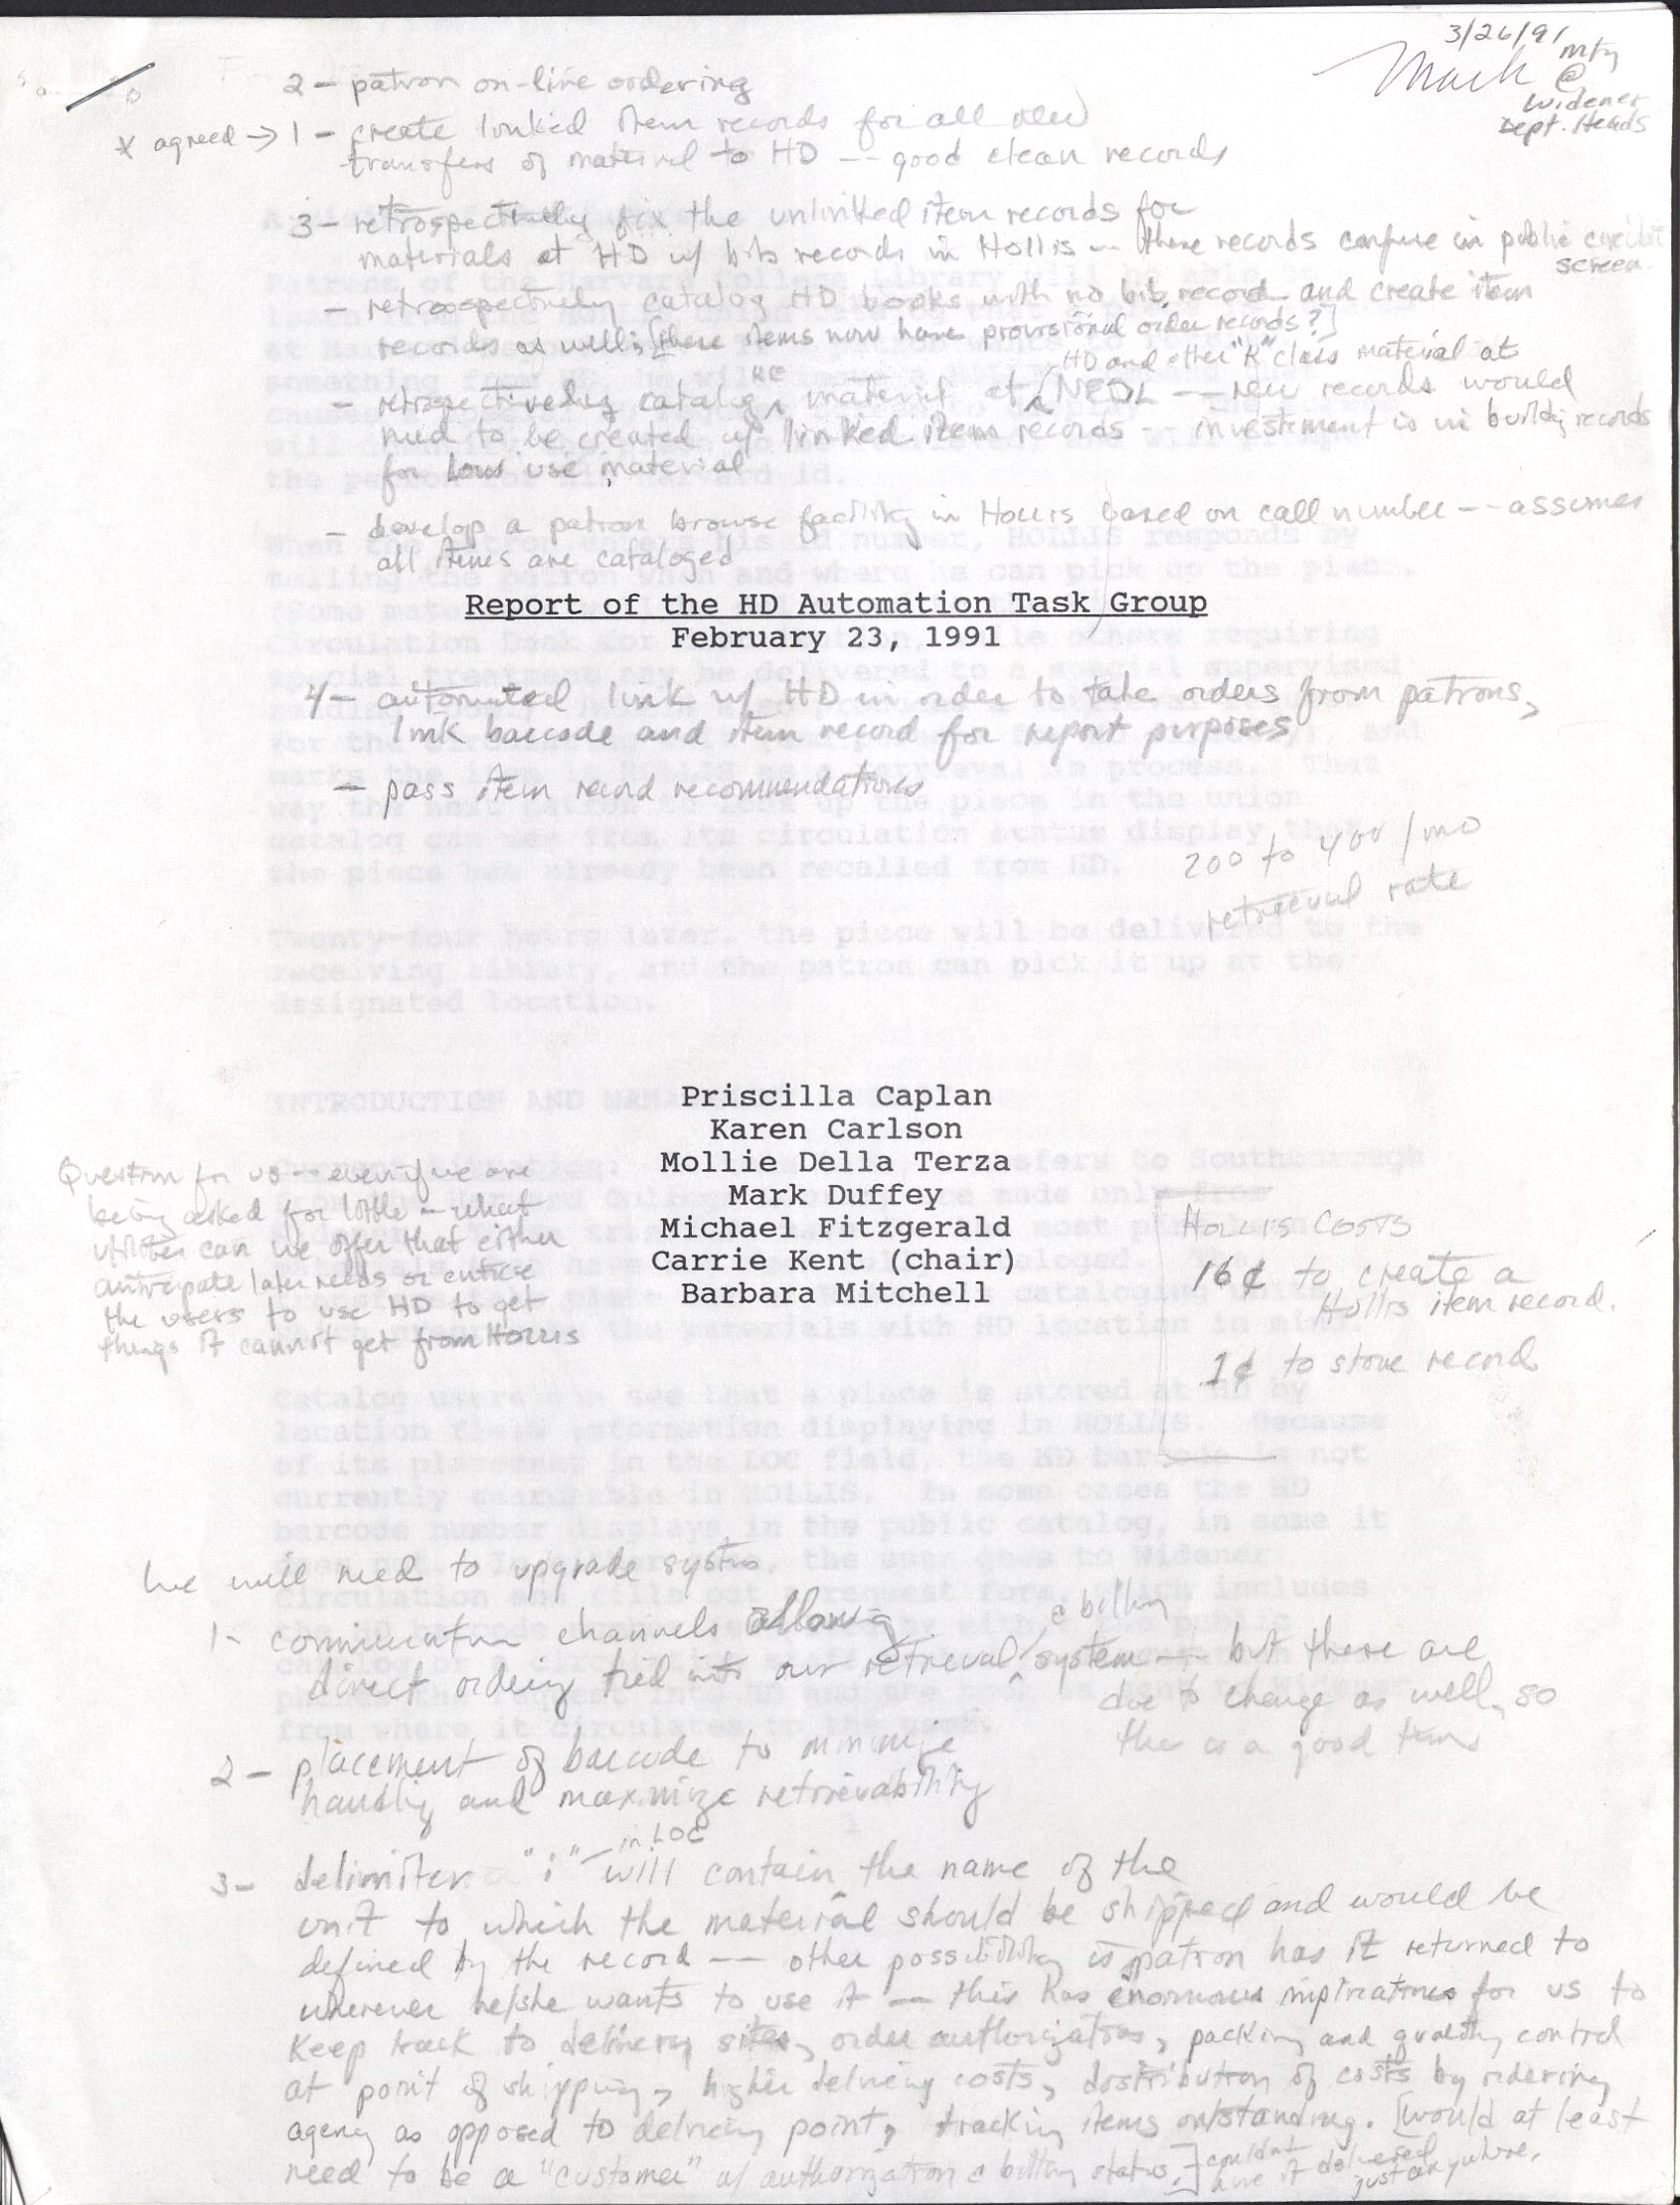 3/26/91
Mark mtg
@
Widener
Dept. Heads
2 - patron on-line ordering
* agreed → 1 - create linked item records for all new
transfers of material to HD -- good clean records
3 - retrospectively fix the unlinked item records for
materials at HD w/ bib records in Hollis -- these records confuse in public
screen.
- retrospectively catalog HD books with no bib record and create item
records as well; [these items now have provisional order records?]
HD and other "K" class material at
- retrospectively catalog material at NEDL -- new records would
need to be created w/ linked item records -- investment is in building records
for low use material
- develop a patron browse facility in Hollis based on call number -- assumes
all items are cataloged
Report of the HD Automation Task Group
February 23, 1991
4 - automated link w/ HD in order to take orders from patrons,
link barcode and item record for report purposes
- pass item record recommendations
200 to 400 /mo
retrieval rate
Priscilla Caplan
Karen Carlson
Mollie Della Terza
Mark Duffey
Michael Fitzgerald
Carrie Kent (chair)
Barbara Mitchell
Question for us -- even if we are
being asked for little -- what
can we offer that either
anticipate later needs or entice
the users to use HD to get
things it cannot get from Hollis
Hollis Costs
16¢ to create a
Hollis item record.
1¢ to store record
We will need to upgrade systems
1- communication channels allowing
direct ordering tied into our retrieval & billing system -- but these are
due to change as well, so
this is a good time
2 - placement of barcode to minimize
handling and maximize retrievability
3 - delimiter "i" - in LOC will contain the name of the
unit to which the material should be shipped and would be
defined by the record -- other possibility is patron has it returned to
wherever he/she wants to use it -- this has enormous implications for us to
keep track to delivery sites, order authorizations, packing and quality control
at point of shipping, higher delivery costs, distribution of costs by ordering
agency as opposed to delivery point, tracking items outstanding. [would at least
need to be a "customer" w/ authorization & billing status.] couldn't
have it delivered
just anywhere.